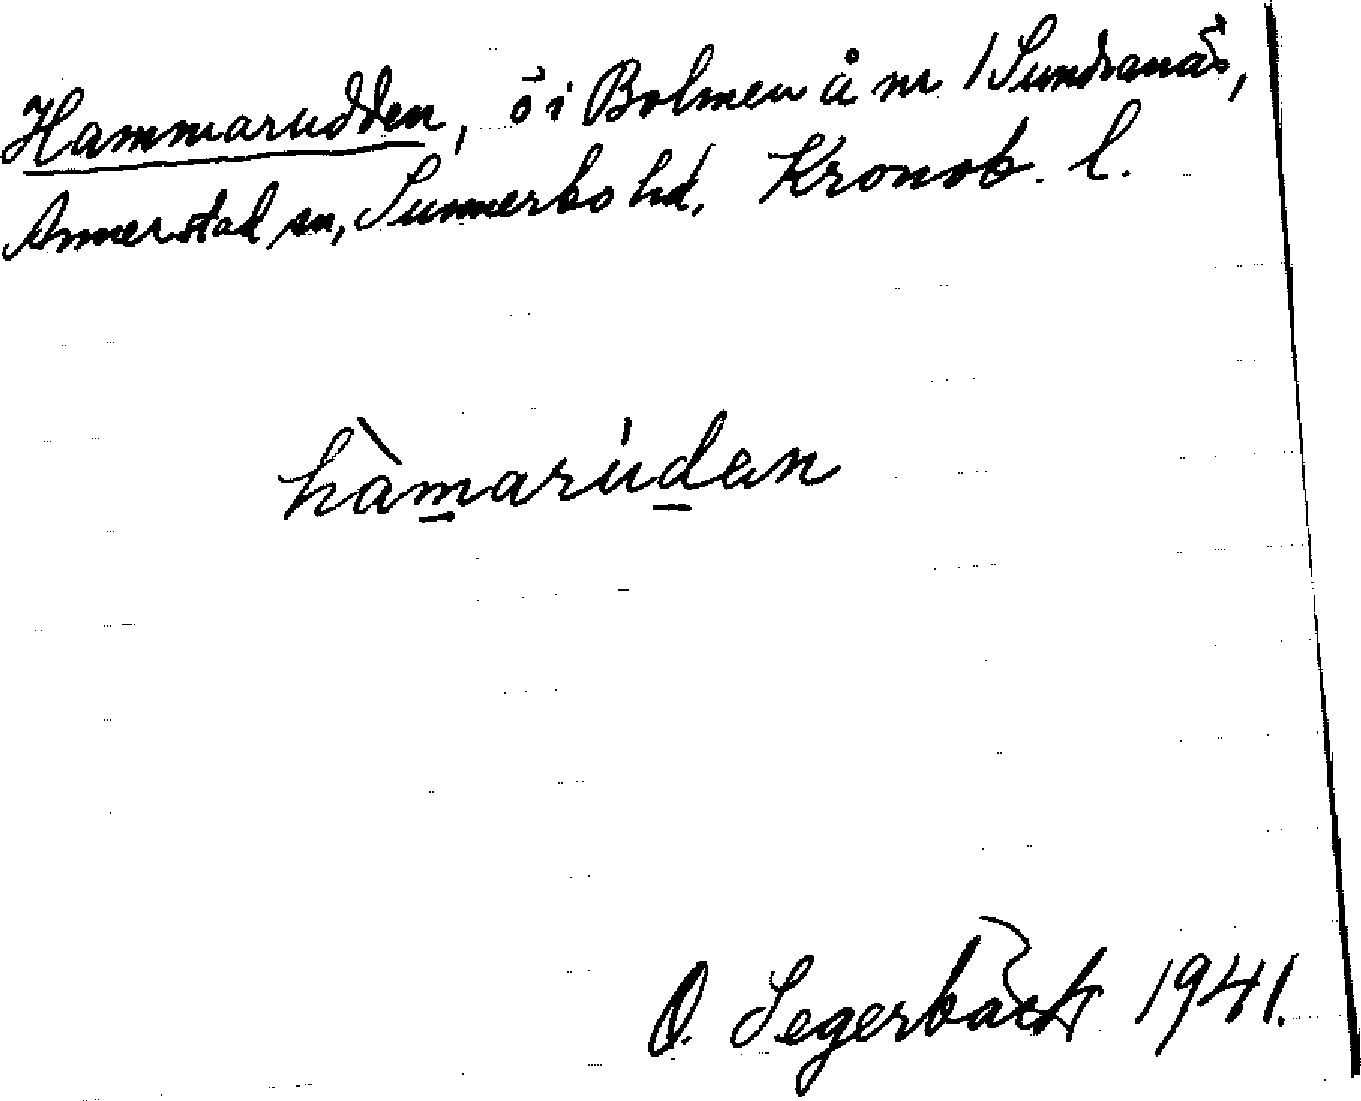 Hammarudden, ö i Bolmen å nr 1 Sundranäs,
Annerstad sn, Sunnerbo hd, Kronob. l.
hàmarúdan
O. Segerbäck 1941.